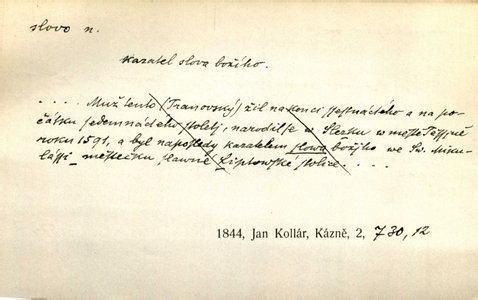 slovo n.
kazatel slova božího.
. . . . Muž tento (Tranovský) žil na konci šestnáctého a na po-
čátku sedemnáctého století, narodil se w Slezku w městě Těssjně
roku 1591, a byl naposledy kazatelem slowa božjho we Sw. Miku-
lássi – městečku slawné Liptowské stolice. . . .
1844, Jan Kollár, Kázně, 2, 730, 12